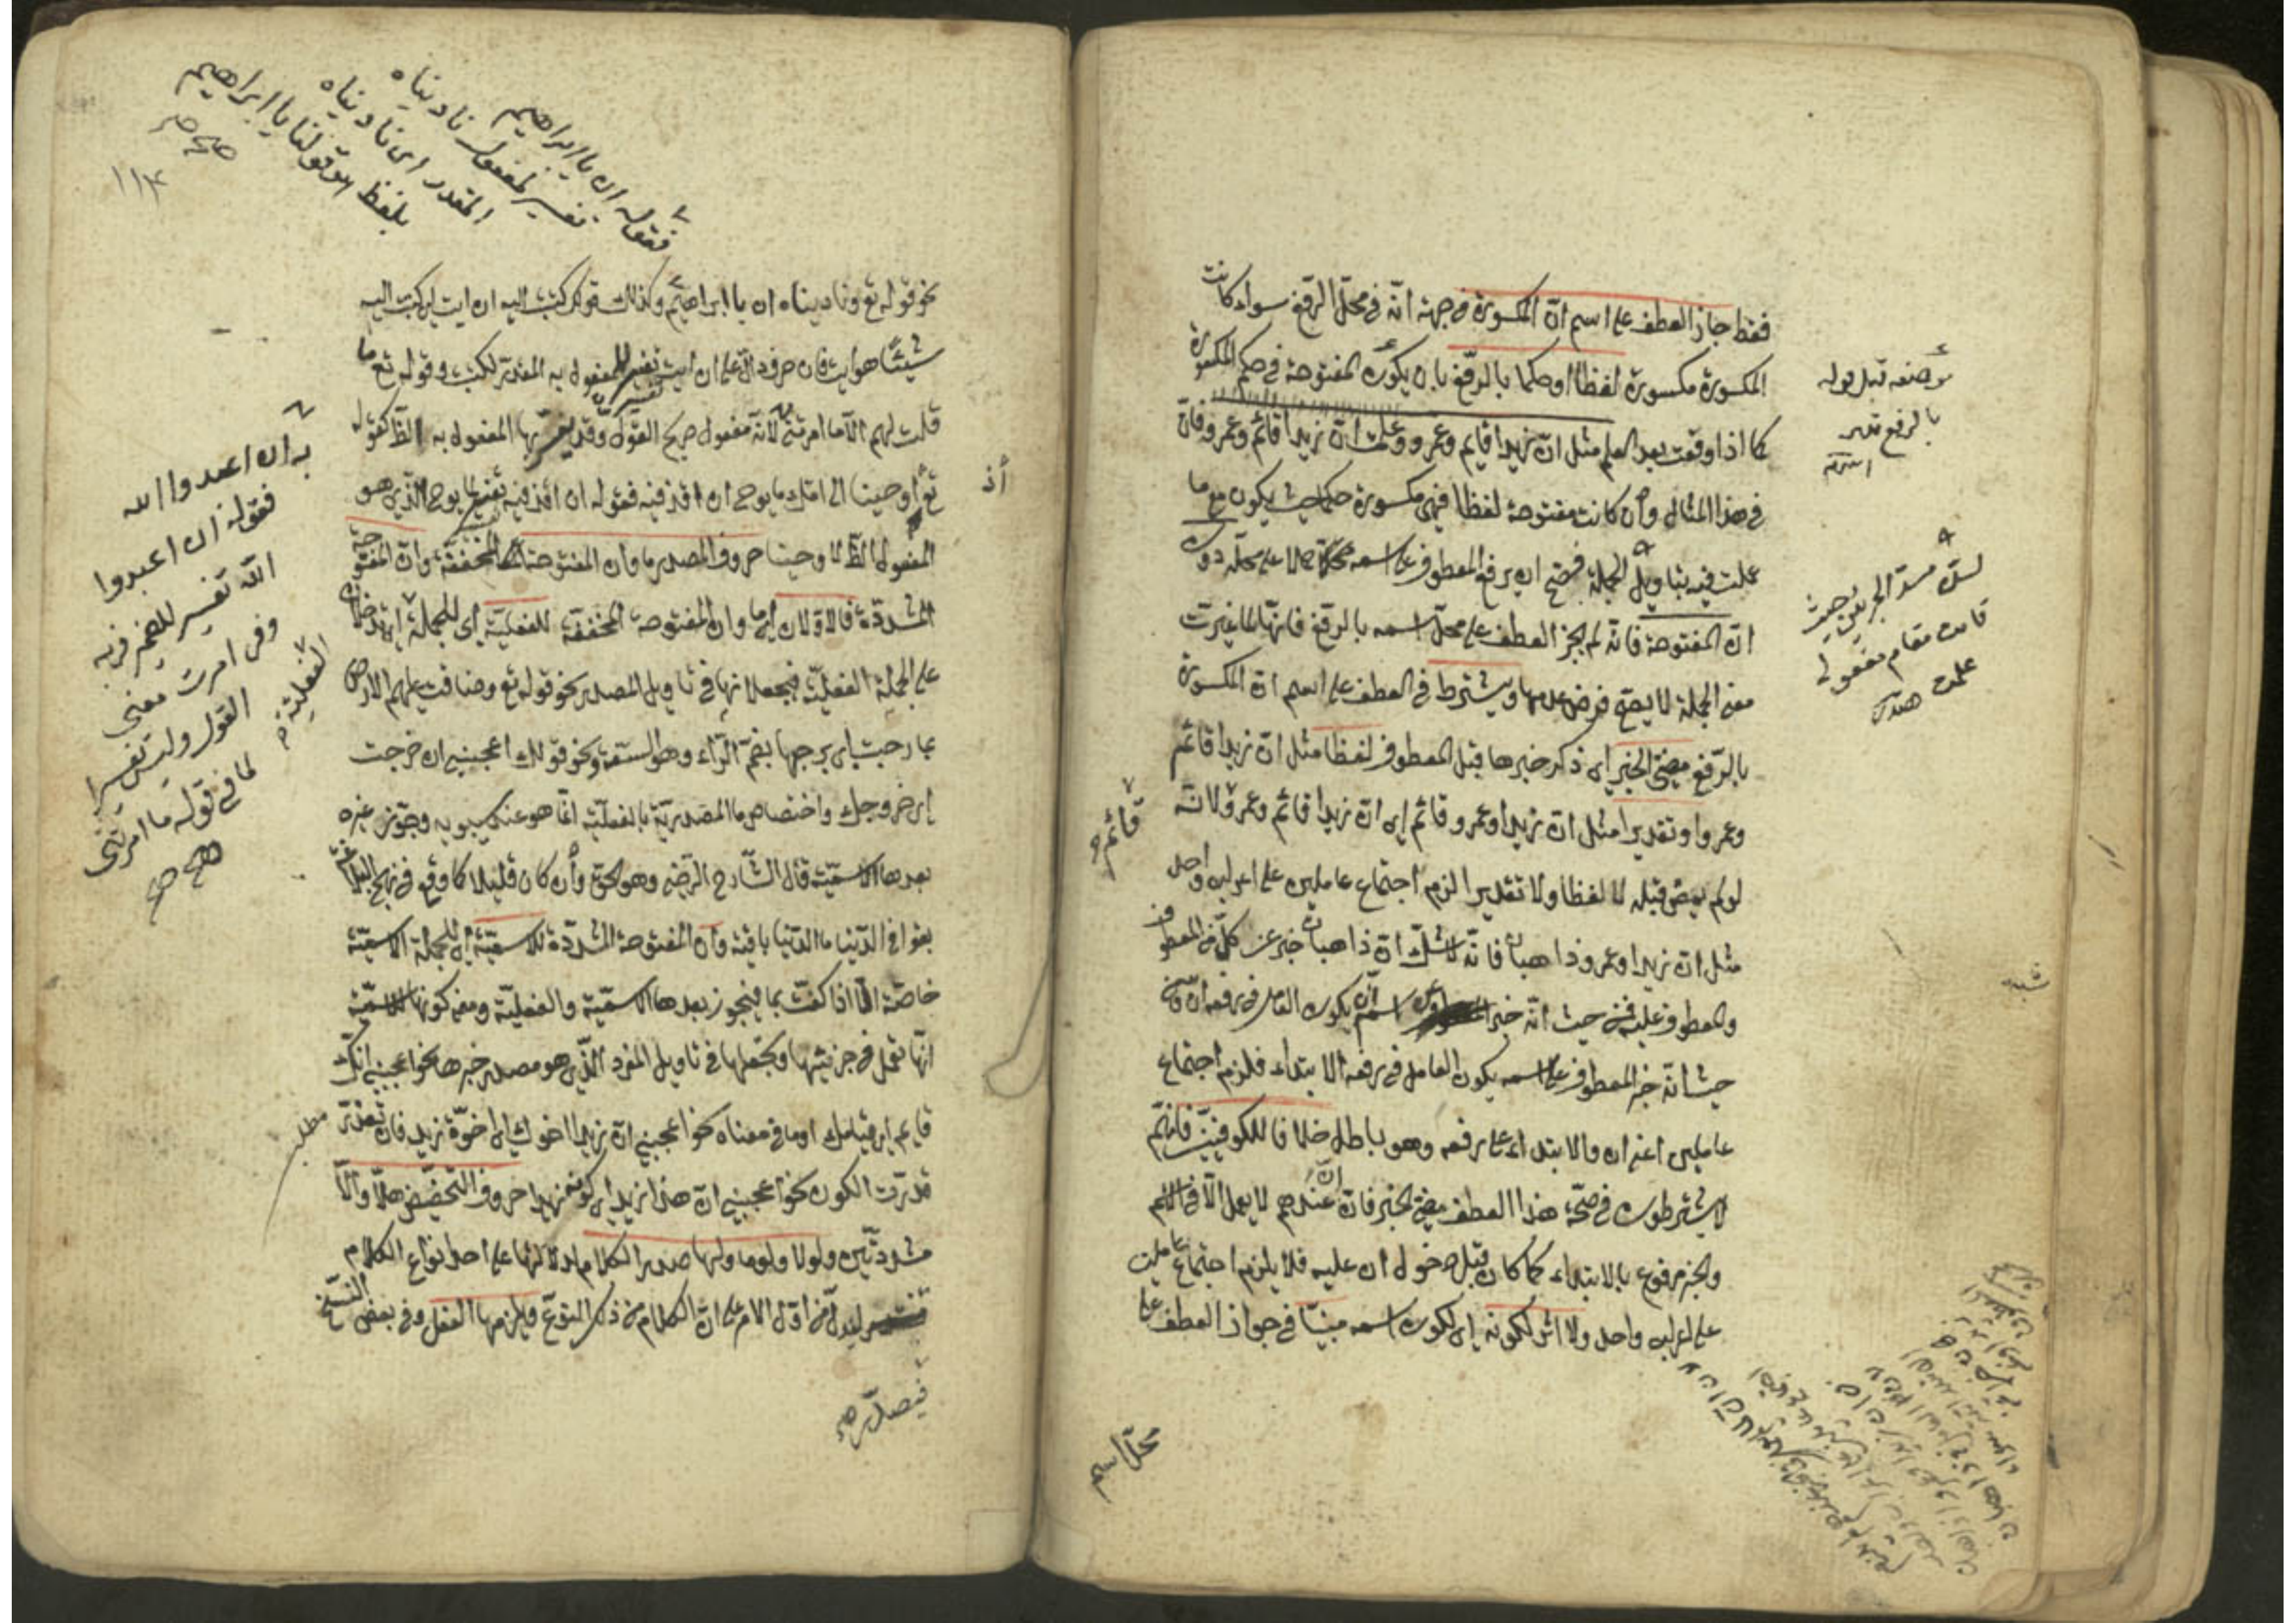 فقط جاز العطف على اسم انّ المكسورة من جهة انّه في محلّ الرفع سواء كانت
المكسورة مكسورة لفظا او حكما بالرّفع بان يكون المفتوحة في حكم المكسورة
كما اذا وقعت بعد العلم مثل انّ زيدا قائم وعمرو وعلمت انّ زيدا قائم وعمرو فانّ
في هذا المثال وان كانت مفتوحة لفظا فهى مكسورة حكما حيث يكون مع ما
عملت فيه بتاويل الجملة فصحّ ان يرفع المعطوف على اسمه حملا على محلّه دون
انّ المفتوحة فانّه لم يجز العطف على محلّ اسمه بالرفع فانّها لمّا غيرت
معنى الجملة لا يصحّ فرض عدمها ويشترط في العطف على اسم انّ المكسورة
بالرّفع مضىّ الخبر اى ذكر خبرها قبل المعطوف لفظا مثل انّ زيدا قائم
وعمرو او تقديرا مثل انّ زيدا وعمرو قائم اى انّ زيدا قائم وعمرو لانّه
لو لم يمض قبله لا لفظا ولا تقديرا لزم اجتماع عاملين على اعراب واحد
مثل انّ زيدا وعمرو ذاهبان فانّه لا شكّ انّ ذاهبان خبر عن كلّ من المعطوف
والمعطوف عليه فمن حيث انّه خبر اسم انّ يكون العامل في رفعه انّ ومن
حيث انّه خبر المعطوف على اسمه يكون العامل في رفعه الابتداء فلزم اجتماع
عاملين اعنى ان والابتداء على رفعه وهو باطل خلافا للكوفيّين فانّهم
لا يشترطون في صحّة هذا العطف مضىّ الخبر فانّ انّ عندهم لا يعمل الّا في الاسم
والخبر مرفوع بالابتداء كما كان قبل دخول ان عليه فلا يلزم اجتماع عاملين
على اعراب واحد ولا اثر لكونه اى لكون اسمه مبنيّا في جواز العطف على
محلّ اسم
موضعه قبل قوله
بالرفع
يسدّ مسدّ الجزئين حيث
قامت مقام مفعولى
علمت
قائم
نحو قوله تع وناديناه ان يا ابراهيم وكذلك قولك كتبت اليه ان ايت اى كتبت اليه
شيئا هو ايت فان حرف دالّ على ان ايت تفسير للمفعول به المقدر لكتبت وقوله تع ما
قلت لهم الّا ما امرتنى لانّه مفعول صريح القول وقد يفسّر بها المفعول به الظّ كقوله
تع اوحينا الى امّك ما يوحى ان اقذفيه فقوله ان اقذفيه تفسير لما يوحى الّذى هو
المفعول الظّ لاوحينا حروف المصدر ما وان المفتوحة المخففة وانّ المفتوحة
المشدّدة فالاوّلان اى ما وان المفتوحة المخففة للفعليّة اى للجملة
على الجملة الفعليّة فيجعلانها في تاويل المصدر نحو قوله تع وضاقت عليهم الارض
بما رحبت اى برحبها بضمّ الرّاء وهو السّعة ونحو قولك اعجبنى ان خرجت
اى خروجك واختصاص ما المصدريّة بالفعليّة انّما هو عند سيبويه وجوّز غيره
بعدها الاسميّة قال الشّارح الرّضى وهو الحقّ وان كان قليلا كما وقع في نهج البلاغة
بقوا في الدّنيا ما الدّنيا باقية وانّ المفتوحة المشدّدة للاسميّة اى للجملة الاسميّة
خاصّة الّا اذا كفّت بما فيجوز بعدها الاسميّة والفعليّة ومعنى كونها للاسميّة
انّها تعمل في جزئيها وتجعلها في تاويل المفرد الّذى هو مصدر خبرها نحو اعجبنى انّك
قايم اى قيامك او ما في معناه نحو اعجبنى انّ زيدا اخوك اى اخوّة زيد فان تعذّر
قدّرت الكون نحو اعجبنى انّ هذا زيد اى كونه زيدا حروف التّحضيض هلّا والّا
مشدّدتين ولولا ولوما ولها صدر الكلام لدلالتها على احد انواع الكلام
ليدلّ من اوّل الامر على انّ الكلام من ذلك النوع ويلزمها الفعل وفي بعض النسخ
فيصدّر صح
فقوله ان يا ابراهيم
تفسير لمفعول ناديناه
المقدر اى ناديناه
بلفظ هو قولنا يا ابراهيم
صح
١١٤
به ان اعبدوا الله
فقوله ان اعبدوا
الله تفسير للضمير في به
وفي امرت معنى
القول وليس تفسيرا
لما في قوله ما امرتنى
صح
الفعلية
مطلب